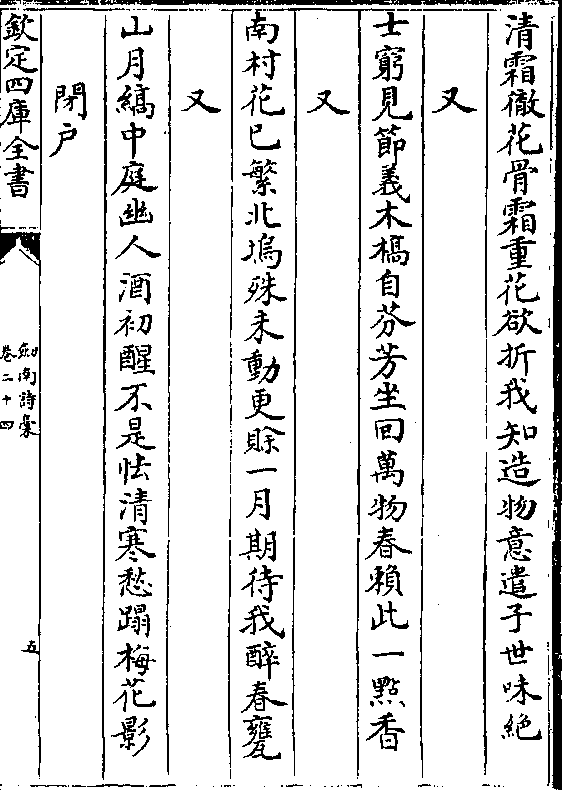 清霜徹花骨霜重花欲折我知造物意遣子世味絶
又
士窮見節義木槁自芬芳坐回萬物春賴此一㸃香
又
南村花已繁北塢殊未動更賖一月期待我醉春甕
又
山月縞中庭幽人酒初醒不是怯清寒愁蹋梅花影
閉户
欽定四庫全書
劍南詩稾
卷二十四
五